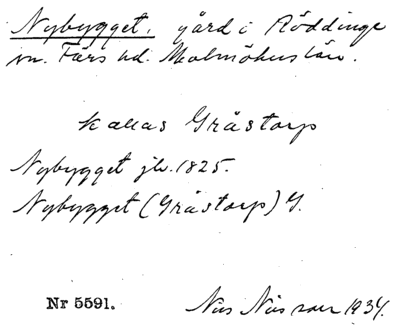 Nybygget, gård i Röddinge
sn. Färs hd. Malmöhus län.
kallas Gråstorp
Nybygget jb. 1825.
Nybygget (Gråstorp) G.
Nr 5591.
Nils Nilsson 1934.